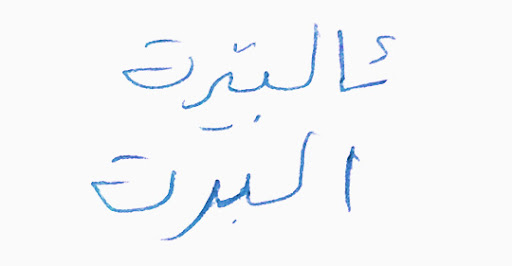 ئالبێرت
البرت